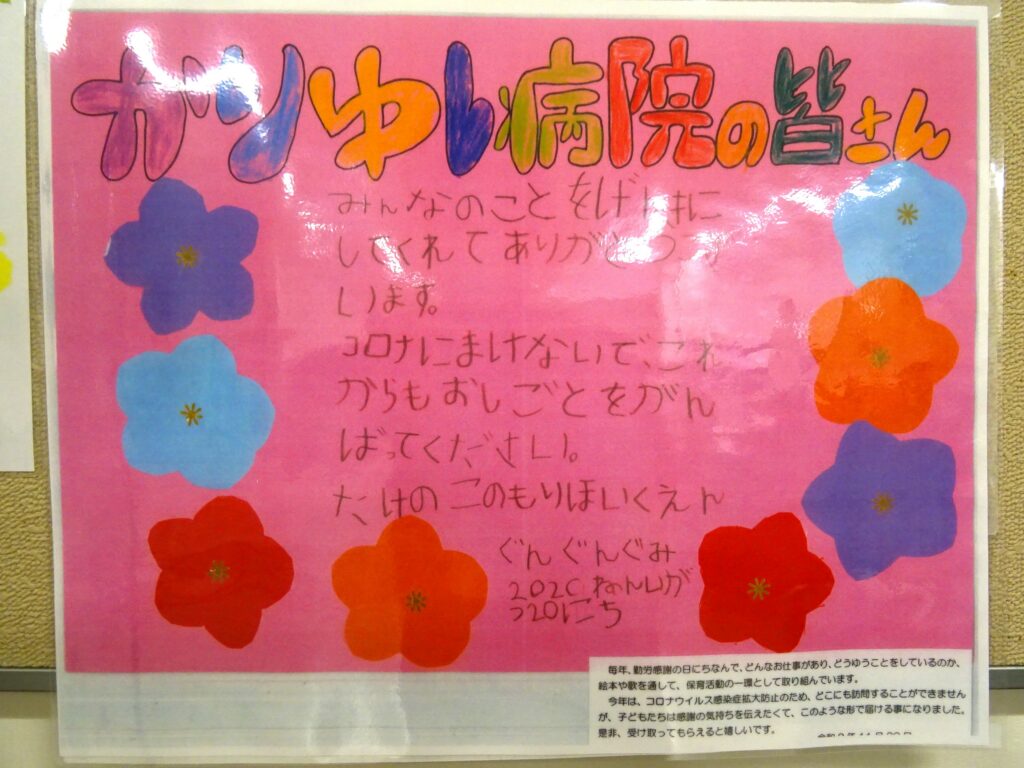 かりゆし病院の皆さん
みんなのことをげんきに
してくれてありがとうござ
います。
コロナにまけないで、これ
からもおしごとをがん
ばってください。
たけのこのもりほいくえん
ぐんぐんぐみ
2020ねん11が
つ20にち
毎年、勤労感謝の日にちなんで、どんなお仕事があり、どうゆうことをしているのか、
絵本や歌を通して、保育活動の一環として取り組んでいます。
今年は、コロナウイルス感染症拡大防止のため、どこにも訪問することができません
が、子どもたちは感謝の気持ちを伝えたくて、このような形で届ける事になりました。
是非、受け取ってもらえると嬉しいです。